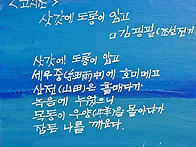 <고시조>
삿갓에 도롱이 입고
□김굉필(조선전기)
삿갓에 도롱이 입고
세우중(細雨中)에 호미메고
산전(山田)을 흩매다가
녹음에 누웠으니
목동이 우양(牛羊)을 몰아다가
잠든 나를 깨와다.